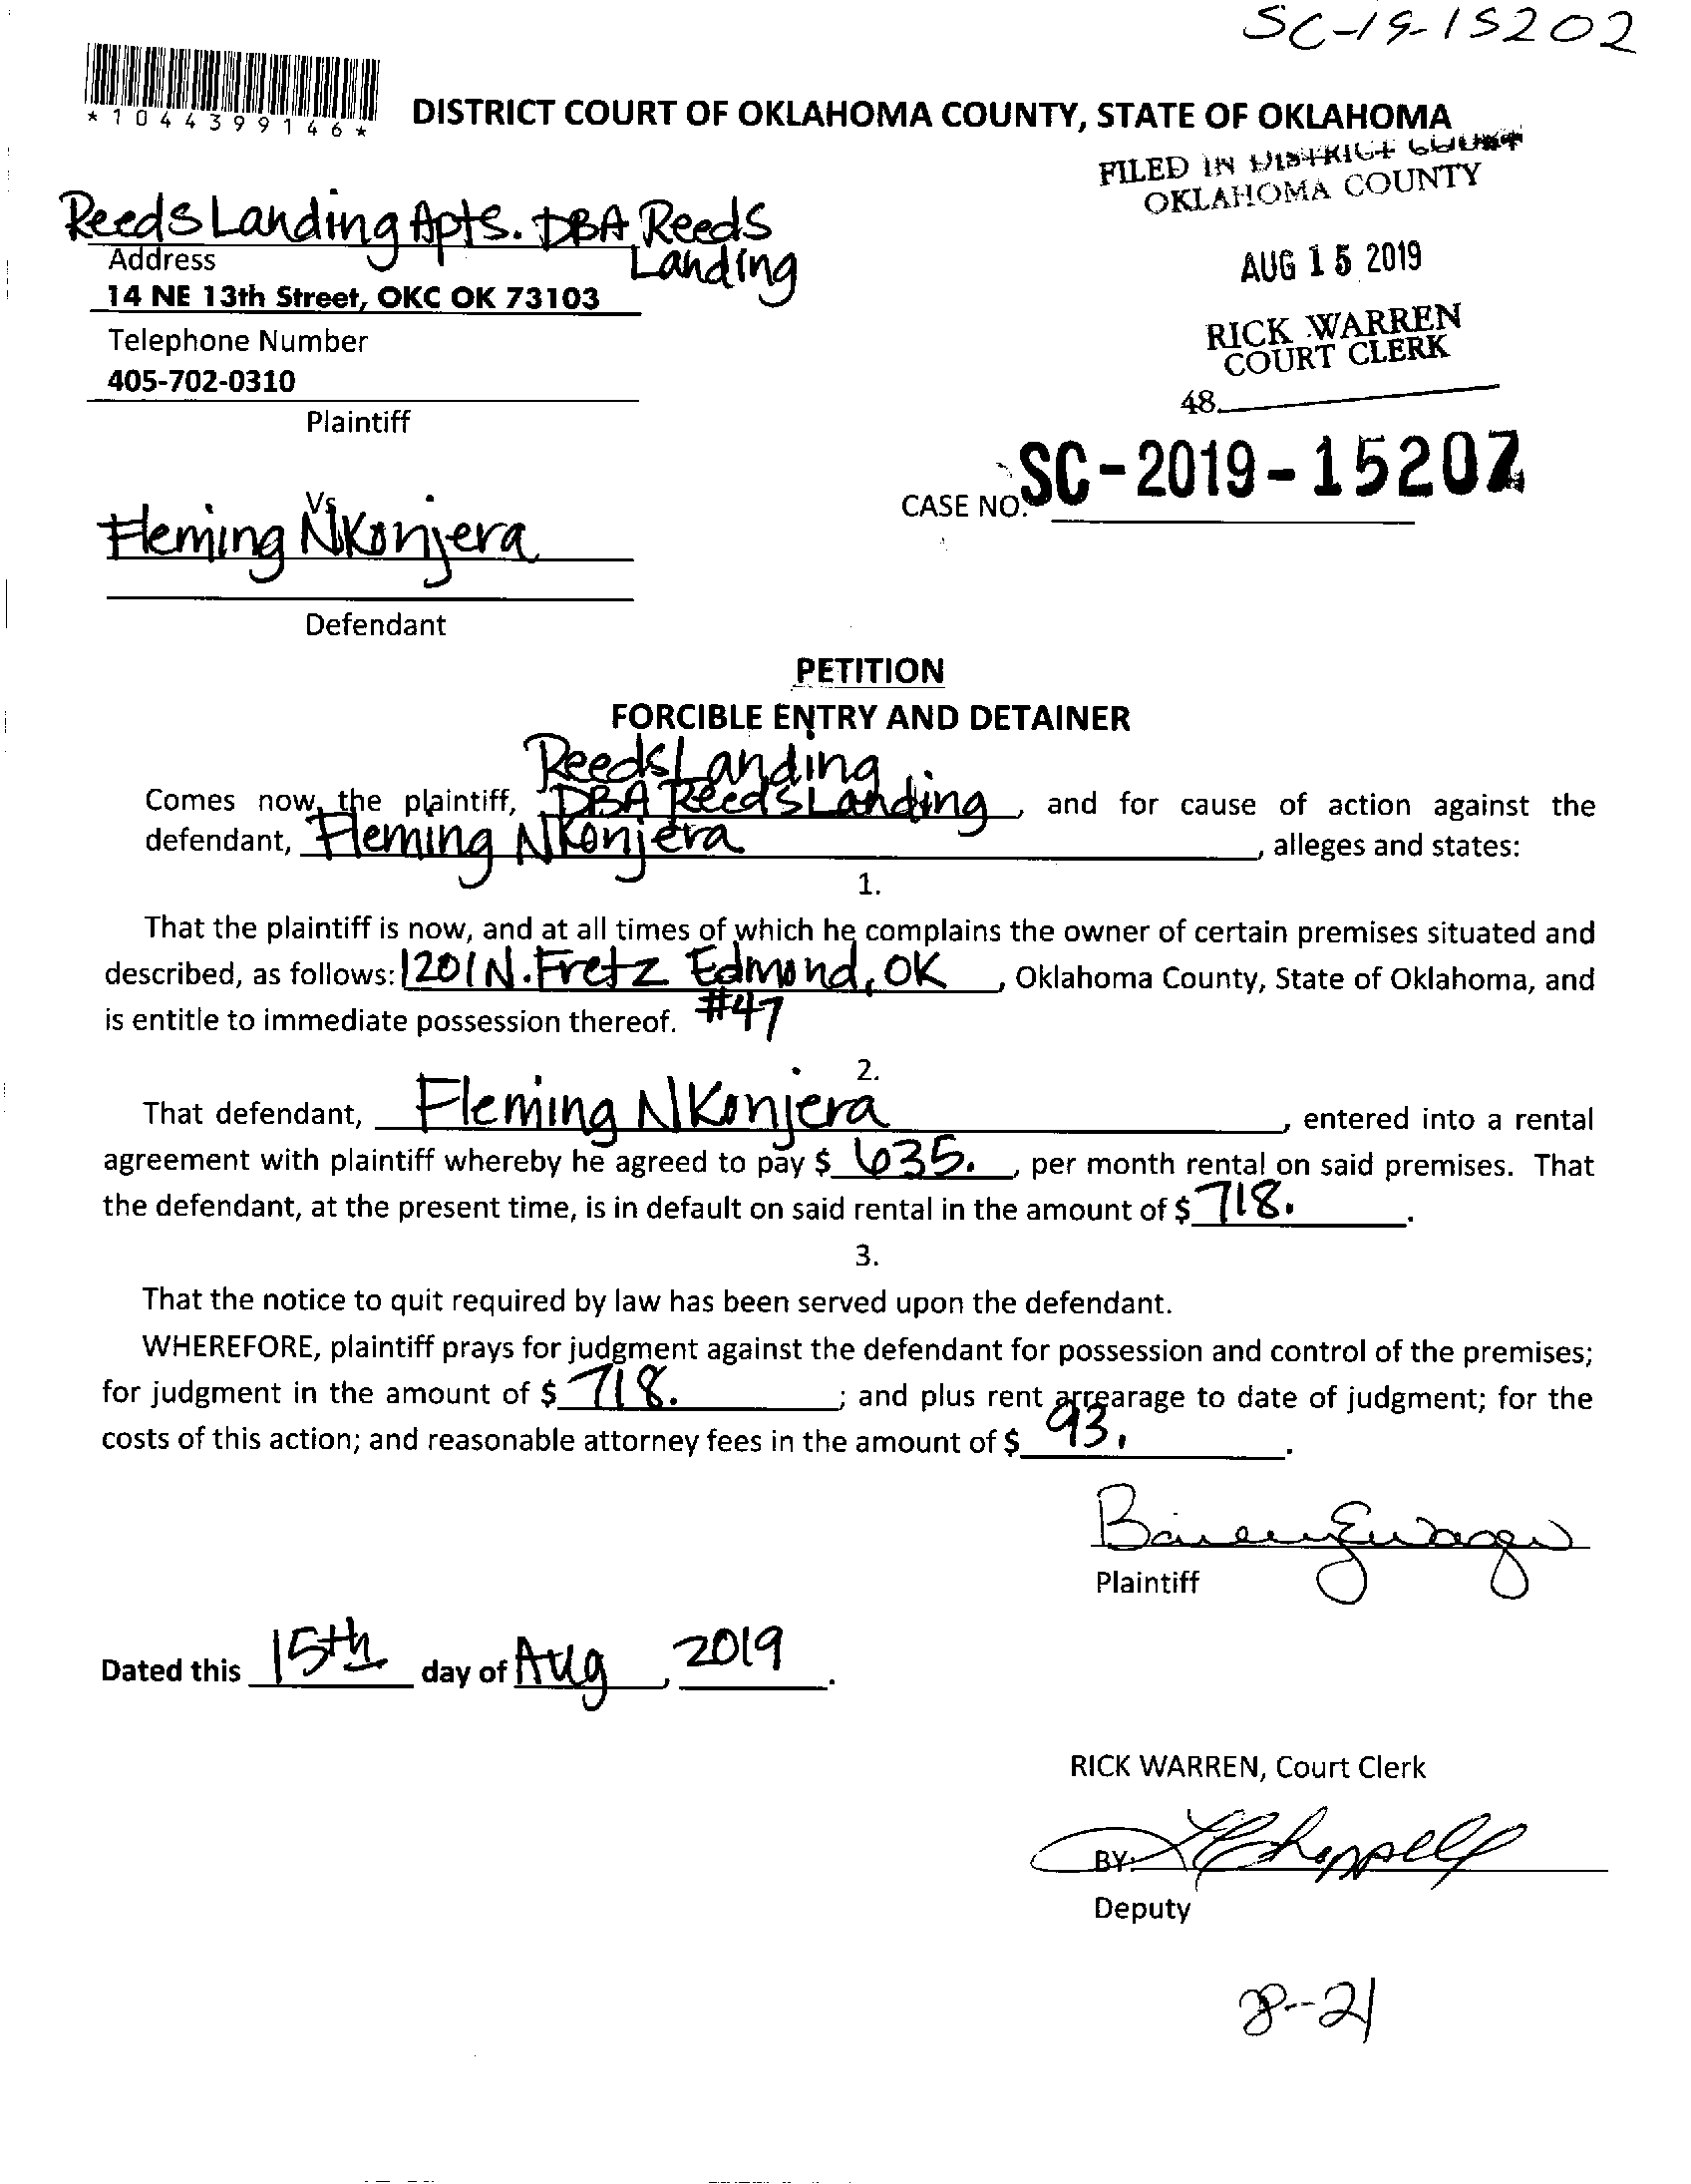 SC-19-15202
*1044399146*
DISTRICT COURT OF OKLAHOMA COUNTY, STATE OF OKLAHOMA
FILED IN DISTRICT COURT
OKLAHOMA COUNTY
Reeds Landing Apts. DBA Reeds
Landing
Address
14 NE 13th Street, OKC OK 73103
Telephone Number
405-702-0310
Plaintiff
AUG 15 2019
RICK WARREN
COURT CLERK
48.
Vs
Fleming NKonjera
Defendant
CASE NO. SC-2019-15202
PETITION
FORCIBLE ENTRY AND DETAINER
Reeds Landing
Comes now, the plaintiff, DBA Reeds Landing, and for cause of action against the
defendant, Fleming NKonjera, alleges and states:
1.
That the plaintiff is now, and at all times of which he complains the owner of certain premises situated and
described, as follows: 1201 N. Fretz Edmond, OK, Oklahoma County, State of Oklahoma, and
is entitle to immediate possession thereof. #47
2.
That defendant, Fleming NKonjera, entered into a rental
agreement with plaintiff whereby he agreed to pay $ 635., per month rental on said premises. That
the defendant, at the present time, is in default on said rental in the amount of $ 718..
3.
That the notice to quit required by law has been served upon the defendant.
WHEREFORE, plaintiff prays for judgment against the defendant for possession and control of the premises;
for judgment in the amount of $ 718.; and plus rent arrearage to date of judgment; for the
costs of this action; and reasonable attorney fees in the amount of $ 93..
Plaintiff
Dated this 15th day of Aug, 2019.
RICK WARREN, Court Clerk
BY: Chappell
Deputy
8--21